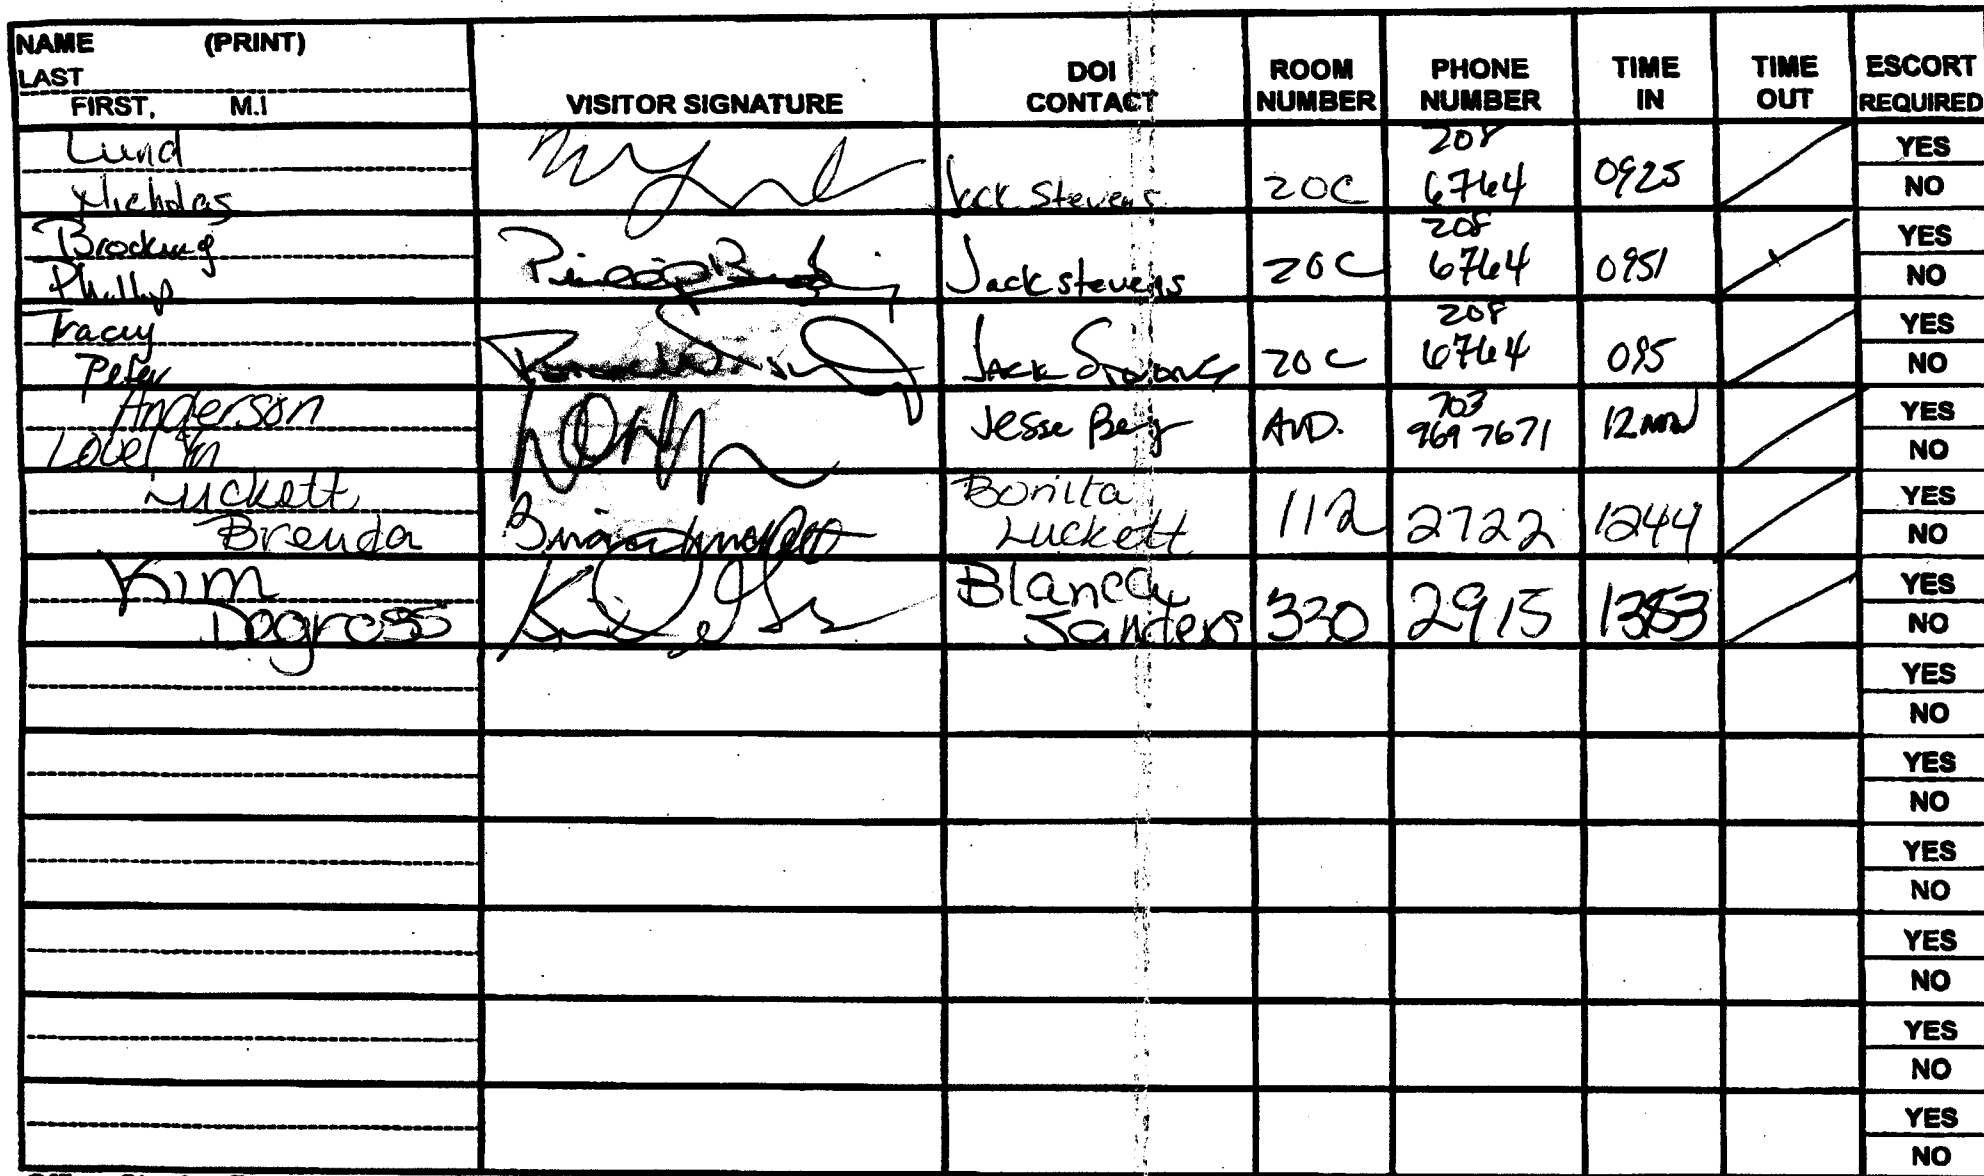 NAME (PRINT)
LAST
FIRST, M.I
VISITOR SIGNATURE
DOI CONTACT
ROOM NUMBER
PHONE NUMBER
TIME IN
TIME OUT
ESCORT REQUIRED
Lund
Nicholas
Jack Stevens
20C
208
6764
0925
YES
NO
Phillip
Jack stevens
20C
208
6764
0951
YES
NO
Tracy
Peter
Jack
20C
208
6764
095
YES
NO
Anderson
Jesse
703
969 7671
YES
NO
Luckett
Brenda
Bonita
Luckett
112
2722
1244
YES
NO
Kim
Dogross
Blanca
Sanders
330
2915
YES
NO
YES
NO
YES
NO
YES
NO
YES
NO
YES
NO
YES
NO